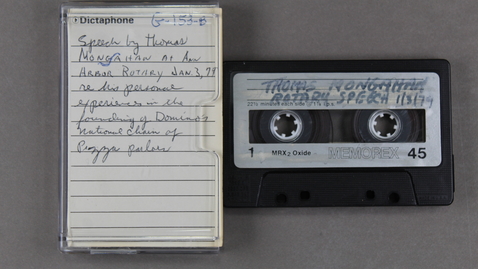 Dictaphone
G-153-B
Speech by Thomas
Monaghan at Ann
Arbor Rotary Jan. 3, 79
re his personal
experiences in the
founding of Domino's
National Chain of
Pizza parlors
THOMAS MONAGHAN
ROTARY SPEECH 1/3/79
22½ minutes each side 1⅞ i.p.s.
1 MRX₂ Oxide MEMOREX 45